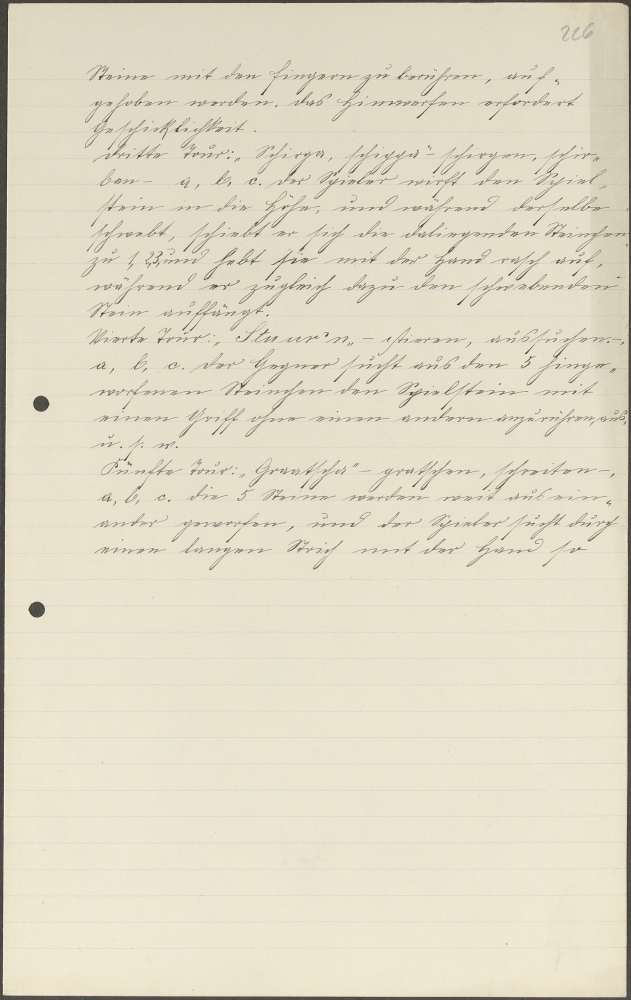 226
Steine mit den Fingern zu berühren, auf-
gehoben werden. Das Hinwerfen erfordert
Geschicklichkeit.
Dritte Tour: „Schirga, schippä" - schergen, schie-
ben - a, b, c. Der Spieler wirft den Spiel-
stein in die Höhe, und während derselbe
schwebt, schiebt er sich die daliegenden Steinchen
zu 1, 2, 3, und hebt sie mit der Hand rasch auf,
während er zugleich dazu den schwebenden
Stein auffängt.
Vierte Tour: „Stuur'n„ - stieren, aussuchen -,
a, b, c. Der Gegner sucht aus den 5 hinge-
worfenen Steinchen den Spielstein mit
einen Griff ohne einen andern anzurühren, aus,
u. s. w.
Fünfte Tour: „Graatscha" - gratschen, schreiten -,
a, b, c. Die 5 Steine werden weit ausein-
ander geworfen, und der Spieler sucht durch
einen langen Strich mit der Hand so